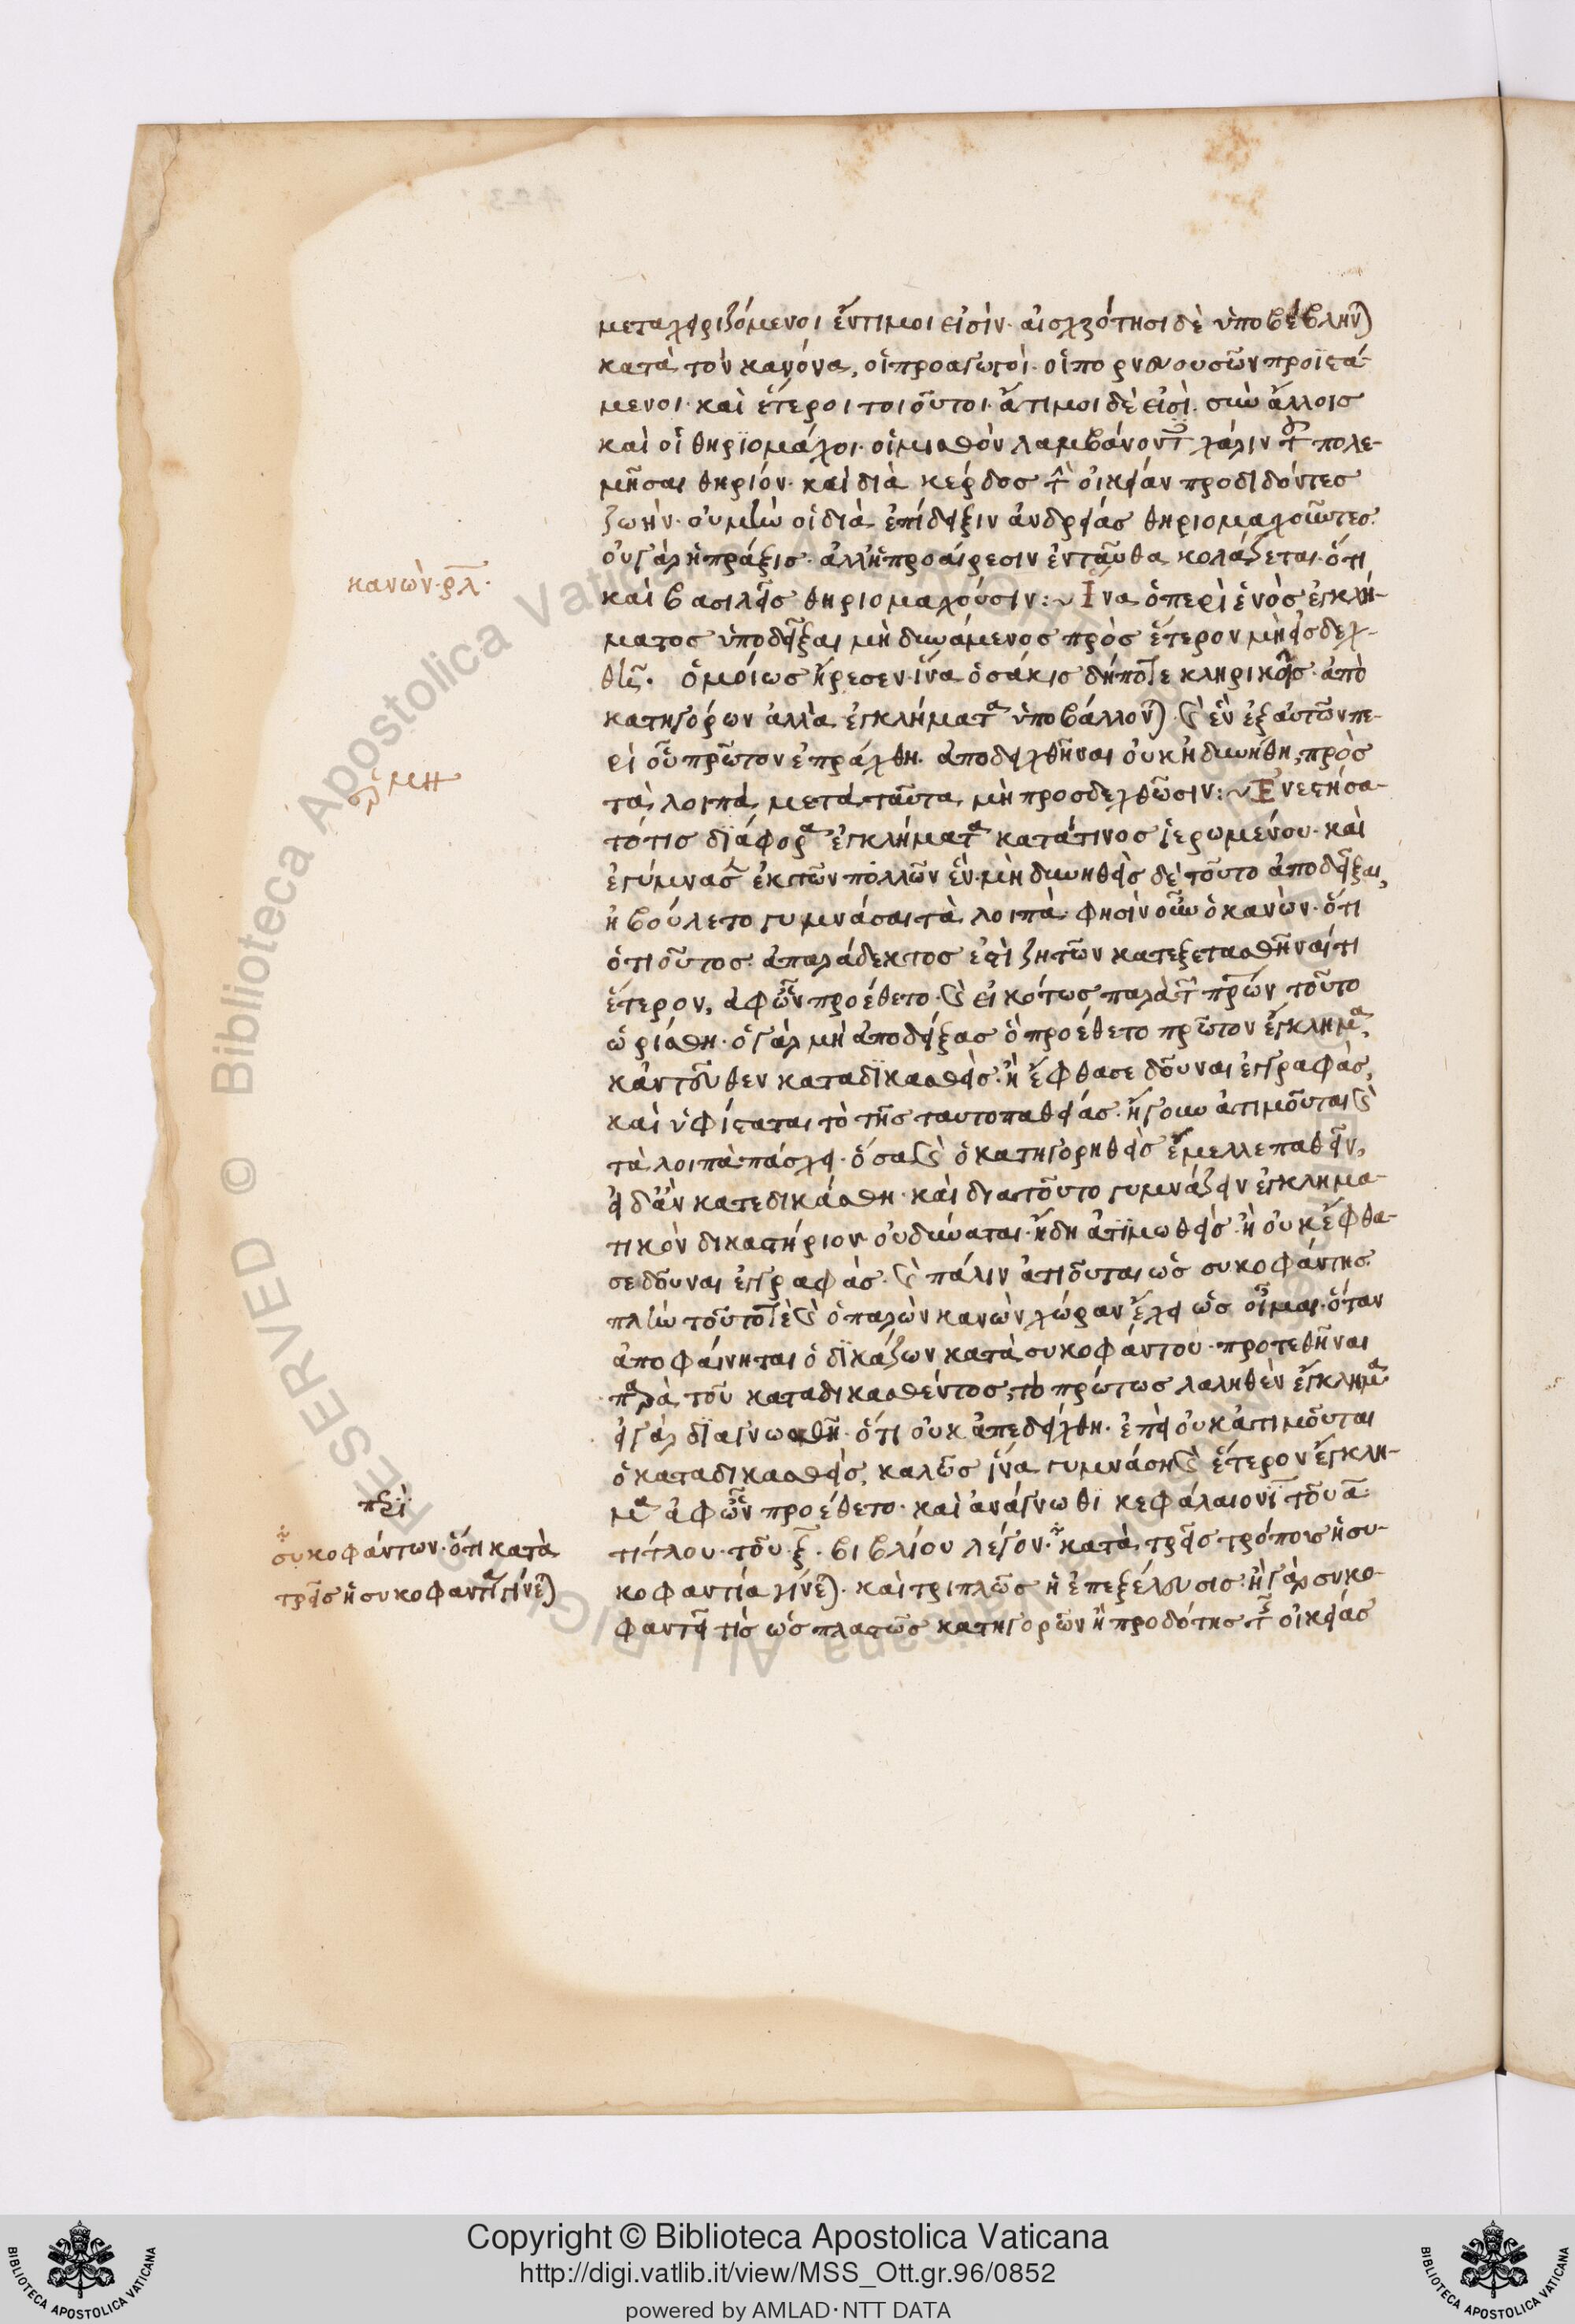 μεταχειριζόμενοι ἔντιμοι εἰσίν· αἰσχρότησι δὲ ὑποβέβληνται
κατὰ τὸν κανόνα, οἱ προαγωγοί· οἱ πορνευουσῶν προϊστά-
μενοι· καὶ ἕτεροι τοιοῦτοι· ἄτιμοι δὲ εἰσὶ σὺν ἄλλοις
καὶ οἱ θηριομάχοι· οἱ μισθὸν λαμβάνοντες χάριν τοῦ πολε-
μῆσαι θηρίον· καὶ διὰ κέρδος τὴν οἰκείαν προδιδόντες
ζωήν· οὐ μὴν οἱ διὰ ἐπίδειξιν ἀνδρείας θηριομαχοῦντες·
οὐ γὰρ ἡ πράξις· ἀλλ' ἡ προαίρεσιν ἐνταῦθα κολάζεται· ὅτι
κανὼν· ρλ·
καὶ βασιλεῖς θηριομαχοῦσιν:~ Ἵνα ὁ περὶ ἑνὸς ἐγκλή-
ματος ὑποδεῖξαι μὴ δυνάμενος πρὸς ἕτερον μὴ εἰσδεχ-
θῇ. ὁμοίως ἤρεσεν· ἵνα ὁσάκις δήποτε κληρικοῖς ἀπὸ
κατηγόρων ἀλλὰ ἐγκλήματα ὑποβάλλονται· καὶ ἓν ἐξ αὐτῶν πε-
ρὶ οὗ πρῶτον ἐπράχθη· ἀποδειχθῆναι οὐκ ἠδυνήθη, πρὸς
τὰ λοιπὰ μετὰ ταῦτα μὴ προσδεχθῶσιν:~ Ἐνεστήσα-
τό τις διάφορα ἐγκλήματα κατά τινος ἱερωμένου· καὶ
ἐγύμνασεν ἐκ τῶν πολλῶν ἕν· μὴ δυνηθεὶς δὲ τοῦτο ἀποδεῖξαι,
ἠβούλετο γυμνάσαι τὰ λοιπά· φησὶν οὖν ὁ κανὼν· ὅτι
ὅτι οὗτος ἀπαράδεκτος ἐστὶ ζητῶν κατεξετασθῆναί τι
ἕτερον, ἀφ' ὧν προέθετο· καὶ εἰκότως παρὰ τῶν πατέρων τοῦτο
ὡρίσθη· ὁ γὰρ μὴ ἀποδείξας ὃ προέθετο πρῶτον ἔγκλημα,
κἀντεῦθεν καταδικασθείς· ἢ ἔφθασε δοῦναι ἐγγραφάς,
καὶ ὑφίσταται τὸ τῆς ταυτοπαθείας· ἤγουν ἀτιμοῦται καὶ
τὰ λοιπὰ πάσχει· ὅσα καὶ ὁ κατηγορηθεὶς ἔμελλε παθεῖν,
εἰ δ' ἂν κατεδικάσθη· καὶ διὰ τοῦτο γυμνάζειν ἐγκλημα-
τικὸν δικαστήριον οὐ δύναται· ἤδη ἀτιμωθείς· ἢ οὐκ ἔφθα-
σε δοῦναι ἐγγραφάς· καὶ πάλιν ἀτιμοῦται ὡς συκοφάντης·
πλὴν τοῦτό τε καὶ ὁ παρὼν κανὼν χώραν ἔχει ὡς οἶμαι· ὅταν
ἀποφαίνηται ὁ δικάζων κατὰ συκοφάντου· προτεθῆναι
παρὰ τοῦ καταδικασθέντος, τὸ πρώτως λαληθὲν ἔγκλημα
εἰ γὰρ διαγνωσθῇ ὅτι οὐκ ἀπεδείχθη· ἐπεὶ οὐκ ἀτιμοῦται
ὁ καταδικασθείς, καλῶς ἵνα γυμνάσῃ καὶ ἕτερον ἔγκλη-
μα ἀφ' ὧν προέθετο· καὶ ἀνάγνωθι κεφάλαιον ι τοῦ α
τίτλου· τοῦ ξ· βιβλίου λέγον· κατὰ τρεῖς τρόπους ἡ συ-
κοφαντία γίνεται· καὶ τριπλῶς ἡ ἐπεξέλευσις· ἢ γὰρ συκο-
φαντεῖ τις ὡς πλαστῶς κατηγορῶν ἢ προδότης τῆς οἰκείας
περὶ
συκοφάντων· ὅτι κατὰ
τρεῖς ἡ συκοφαντία γίνεται
Copyright © Biblioteca Apostolica Vaticana
http://digi.vatlib.it/view/MSS_Ott.gr.96/0852
powered by AMLAD·NTT DATA
BIBLIOTECA APOSTOLICA VATICANA
BIBLIOTECA APOSTOLICA VATICANA